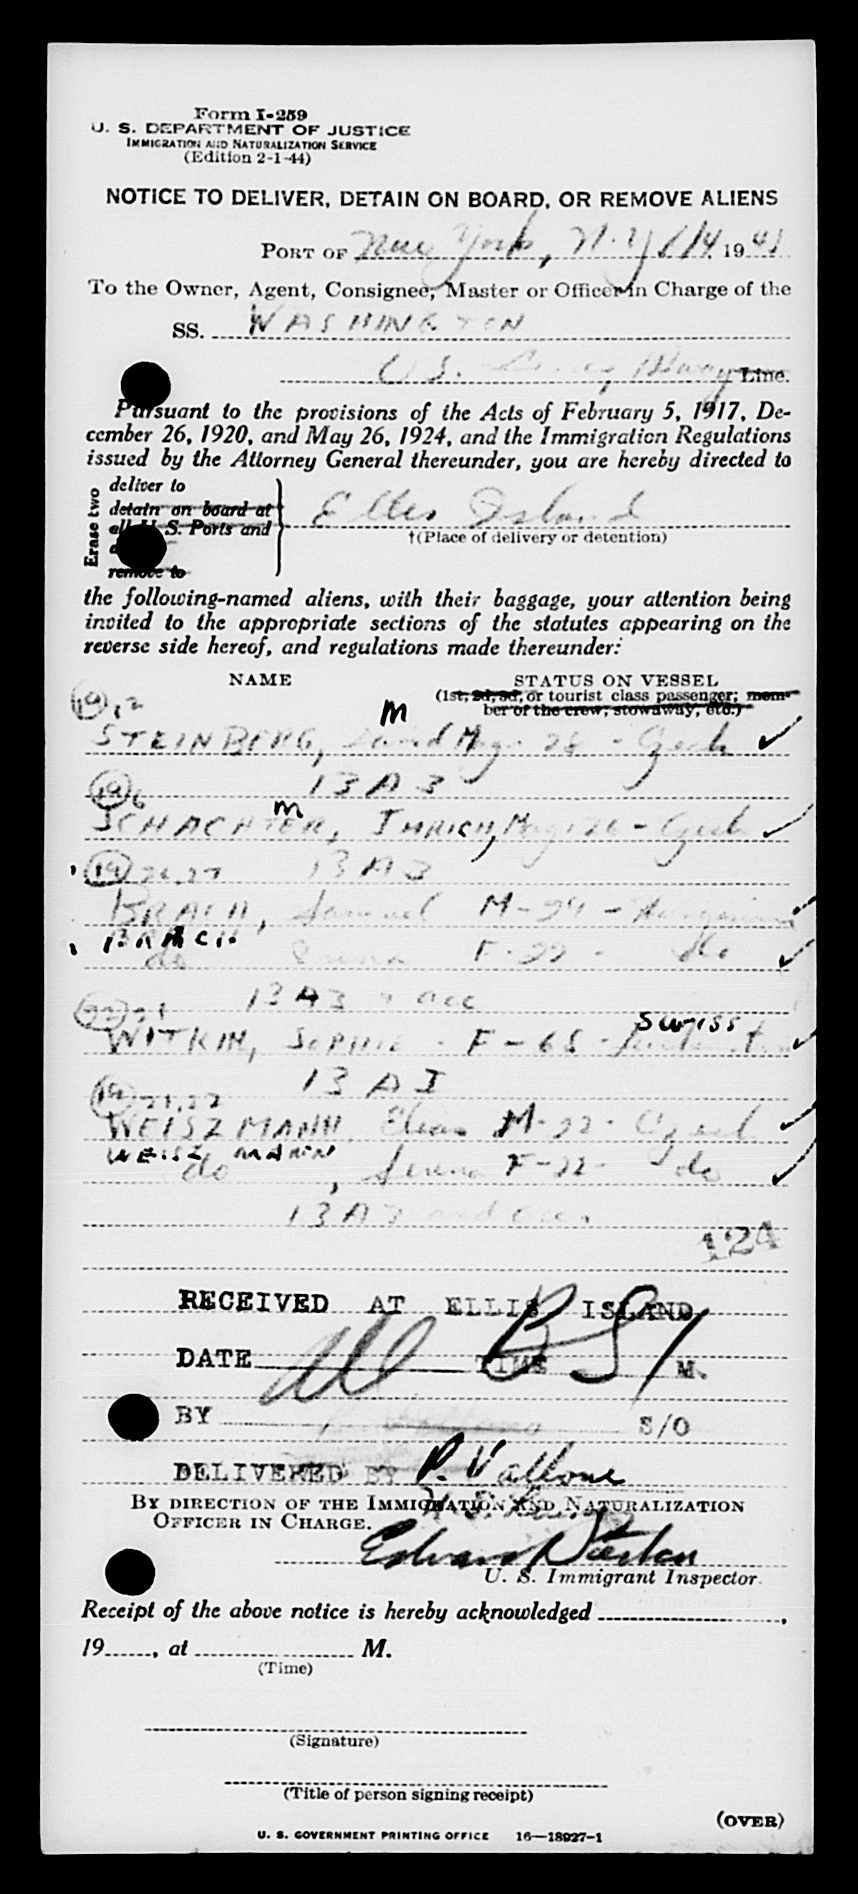 Form I-259
U. S. DEPARTMENT OF JUSTICE
IMMIGRATION AND NATURALIZATION SERVICE
(Edition 2-1-44)
NOTICE TO DELIVER, DETAIN ON BOARD, OR REMOVE ALIENS
PORT OF New York, N.Y. 1/14 19
To the Owner, Agent, Consignee, Master or Officer in Charge of the
SS. WASHINGTON
U.S. Line.
Pursuant to the provisions of the Acts of February 5, 1917, De-
cember 26, 1920, and May 26, 1924, and the Immigration Regulations
issued by the Attorney General thereunder, you are hereby directed to
Erase two
deliver to
detain on board at
all U. S. Ports and
remove to
Ellis Island
†(Place of delivery or detention)
the following-named aliens, with their baggage, your attention being
invited to the appropriate sections of the statutes appearing on the
reverse side hereof, and regulations made thereunder:
NAME STATUS ON VESSEL
(1st, 2d, 3d, or tourist class passenger; mem-
ber of the crew, stowaway, etc.)
19 , 2 M
STEINBERG, Czech ✓
19 6 13 A 3
M
SCHACHTER, IMRICH, Czech ✓
19 26,27 13 A 3
BRACH, Samuel M-24 - ✓
BRACH
do F-22 - do ✓
13 A3
Swiss
WITKIN, SOPHIE - F-65 - ✓
13 A I
19 21,22
WEISZMANN, Elias M-22- Czech ✓
WEISZMANN
do , Serena F-22- do ✓
13 A3
124
RECEIVED AT ELLIS ISLAND
DATE TIME M.
BY S/O
DELIVERED BY P. Vallone
BY DIRECTION OF THE IMMIGRATION AND NATURALIZATION
OFFICER IN CHARGE.
Edward
U. S. Immigrant Inspector.
Receipt of the above notice is hereby acknowledged ,
19 , at M.
(Time)
(Signature)
(Title of person signing receipt)
(OVER)
U. S. GOVERNMENT PRINTING OFFICE 16—18927-1